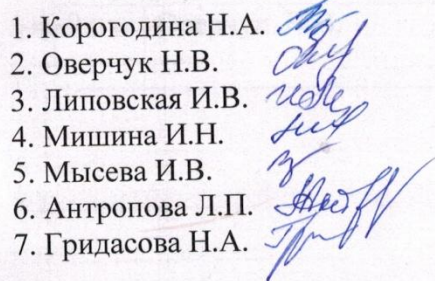 1. Корогодина Н.А.
2. Оверчук Н.В.
3. Липовская И.В.
4. Мишина И.Н.
5. Мысева И.В.
6. Антропова Л.П.
7. Гридасова Н.А.